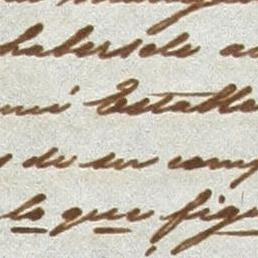 habersele a
mi Estable
s de su comp
lo que fig